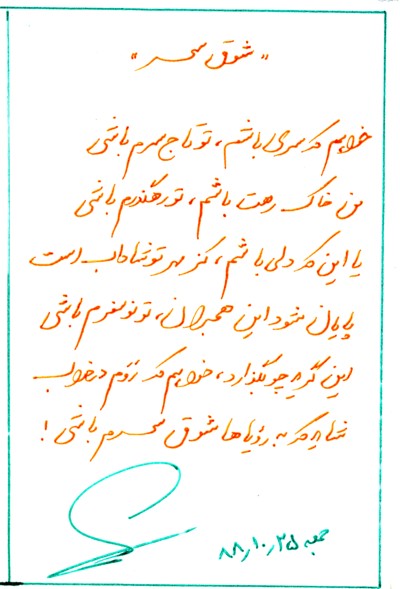 « شوق سحر »
خواهم که سری باشم، تو تاج سرم باشی
من خاک رهت باشم، تو رهگذرم باشی
یا این که دلی باشم، کز مهر تو شاداب است
پایان شود این هجران، تو نوسفرم باشی
این گریه چو بگذارد، خواهم که رَوَم در خواب
شاید که به رؤیاها شوق سحرم باشی!
جمعه ۲۵ر۱۰ر۸۸